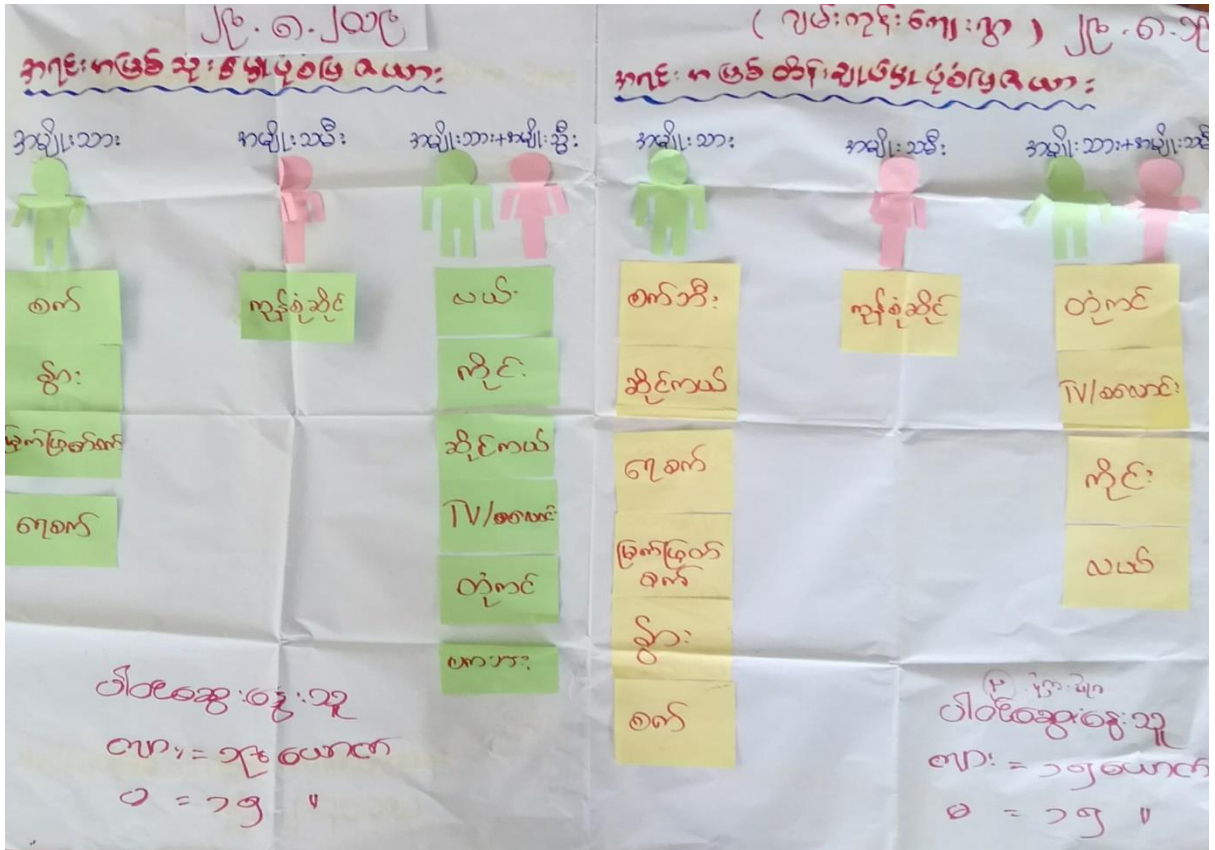 ၂၉.၁.၂၀၁၉
အရင်းအမြစ်သုံးစွဲမှုပုံစံပြဇယား
အမျိုးသား အမျိုးသမီး အမျိုးသား+အမျိုးသ္မီး
စက်
နွား
မြက်ဖြတ်စက်
ရေစက်
ကုန်စုံဆိုင်
လယ်
ကိုင်း
ဆိုင်ကယ်
TV/စလောင်း
တုံကင်
ပါဝင်ဆွေးနွေးသူ
ကျား = ၁၉ ယောက်
မ = ၁၅ "
(လှမ်းကုန်းကျေးရွာ) ၂၉.၁.၁၉
အရင်းအမြစ်ထိန်းချုပ်မှုပုံစံပြဇယား
အမျိုးသား အမျိုးသမီး အမျိုးသား+အမျိုးသမီ
စက်ဘီး
ဆိုင်ကယ်
ရေစက်
မြက်ဖြတ်
စက်
နွား
စက်
ကုန်စုံဆိုင်
တုံကင်
TV/စလောင်း
ကိုင်း
လယ်
ပါဝင်ဆွေးနွေးသူ
ကျား = ၁၅ယောက်
မ = ၁၅ "